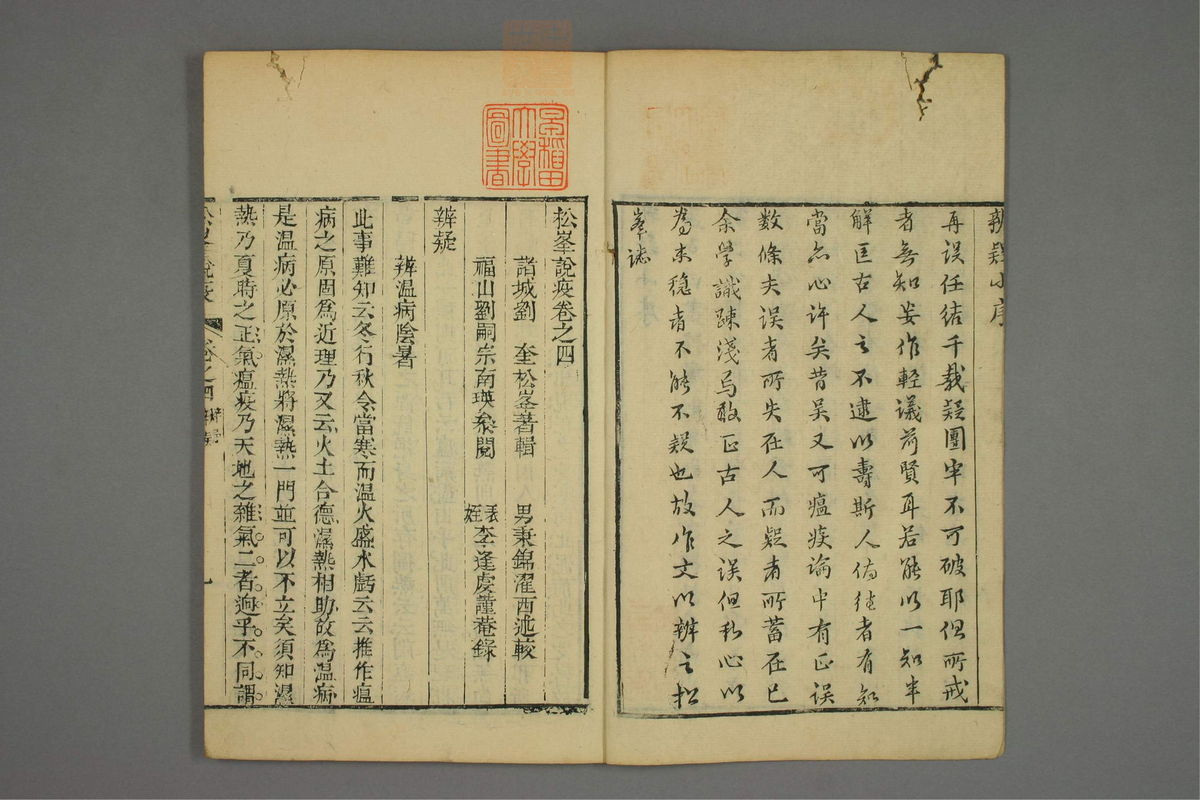 辨疑小序
再误任结千载疑團牢不可破耶但所戒
者無知妄作輕議前賢耳若能以一知半
解匡古人之不逮以壽斯人俑徃者有知
當亦心許矣昔吴又可瘟疫論中有正误
数條夫误者所失在人而疑者所蓄在已
余學識踈淺焉敢正古人之误但私心以
為未穏者不能不疑也故作文以辨之松
峯誌
早稲田大學圖書
松峯說疫卷之四
諸城劉 奎松峯著輯 男秉錦濯西述較
福山劉嗣宗南瑛叅閱 表姪李逢虔謹菴錄
辨疑
辨温病陰暑
此事難知云冬行秋令當寒而温火盛水虧云云推作瘟
病之原固爲近理乃又云火土合德濕熱相助故爲温病
是温病必原於濕熱將濕熱一門並可以不立矣須知濕
熱乃夏時之正氣瘟疫乃天地之雜氣二者逈乎不同謂
松峯說疫 卷之四 辨疑